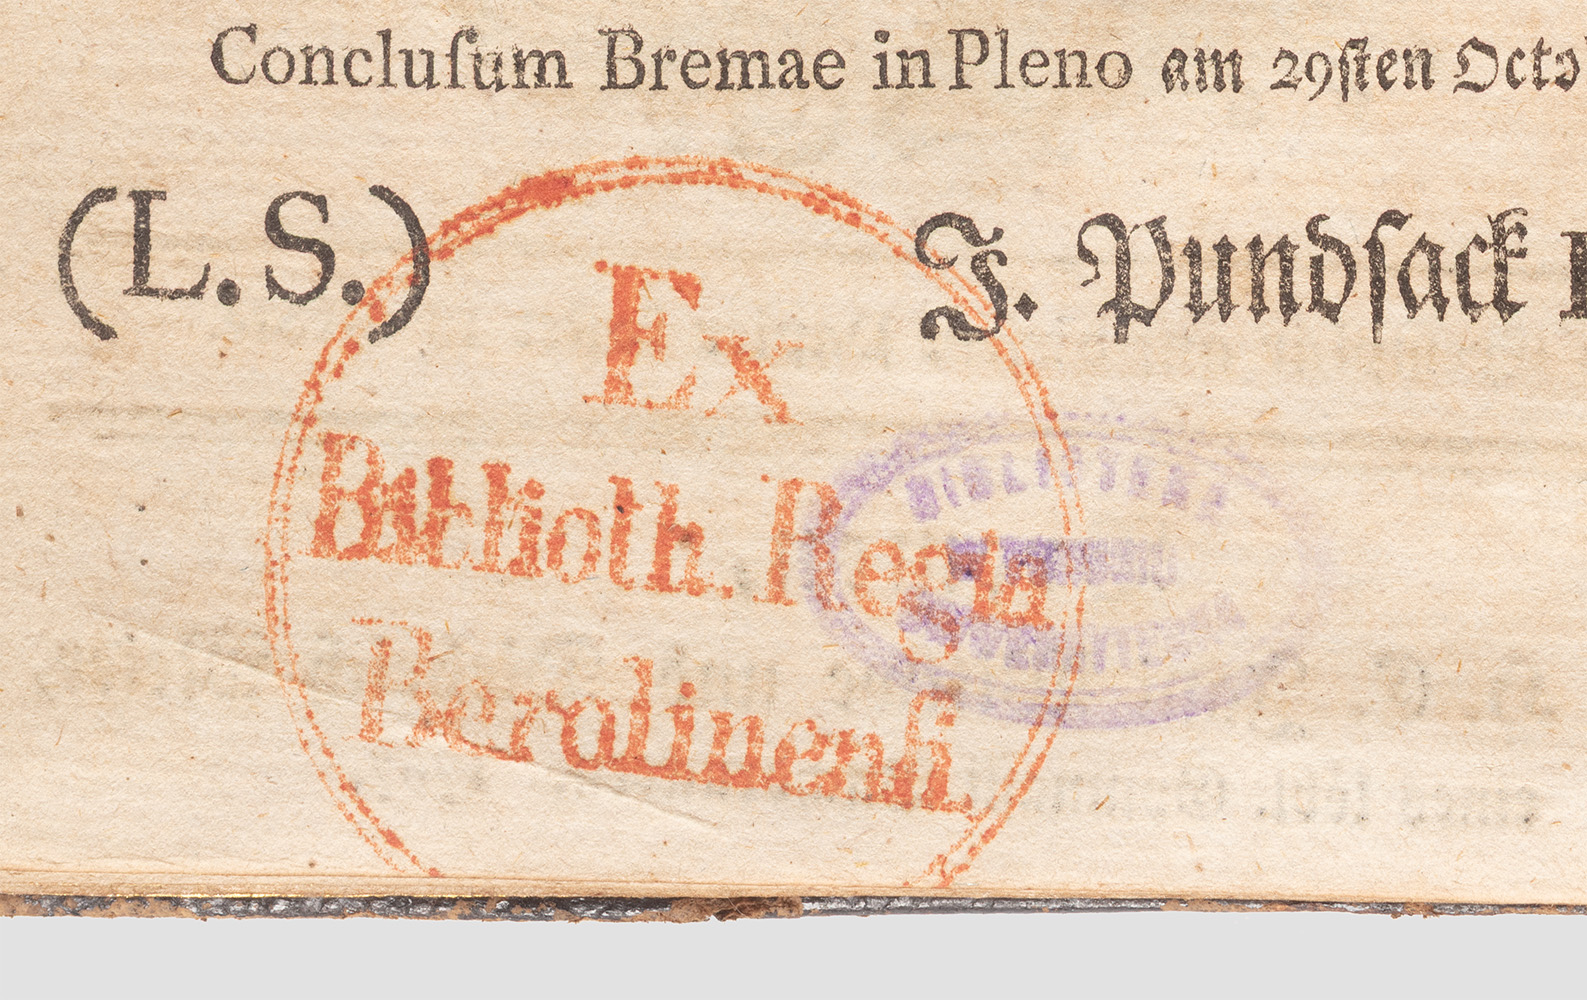 Concluſum Bremae in Pleno am 29ſten Octo
(L. S.)
J. Pundſack
Ex
Biblioth. Regia
Berolinenſi
BIBLIOTEKA